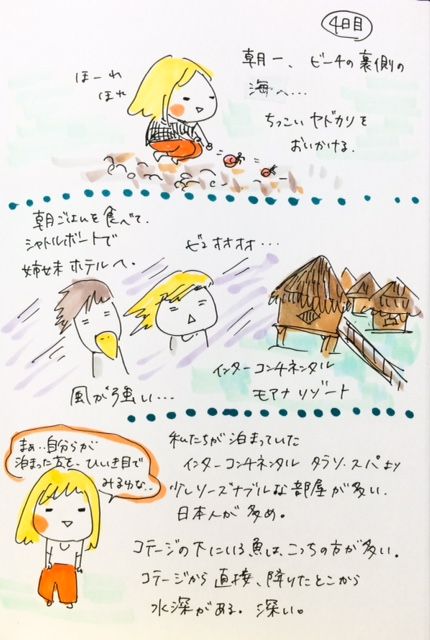 4日目
朝一、ビーチの裏側の
海へ…
ほーれ
ほれ
ちっこいヤドカリを
おいかける。
朝ごはんを食べて、
シャトルボートで
姉妹ホテルへ。
ビュオオオオ…
風が強い…
インターコンチネンタル
モアナリゾート
まぁ…自分らが
泊まった方を、ひいき目で
みるわな…
私たちが泊まっていた
インターコンチネンタル タラソ・スパより
少しリーズナブルな部屋が多い。
日本人が多め。
コテージの下にいる魚は、こっちの方が多い。
コテージから直接、降りたとこから
水深がある。深い。